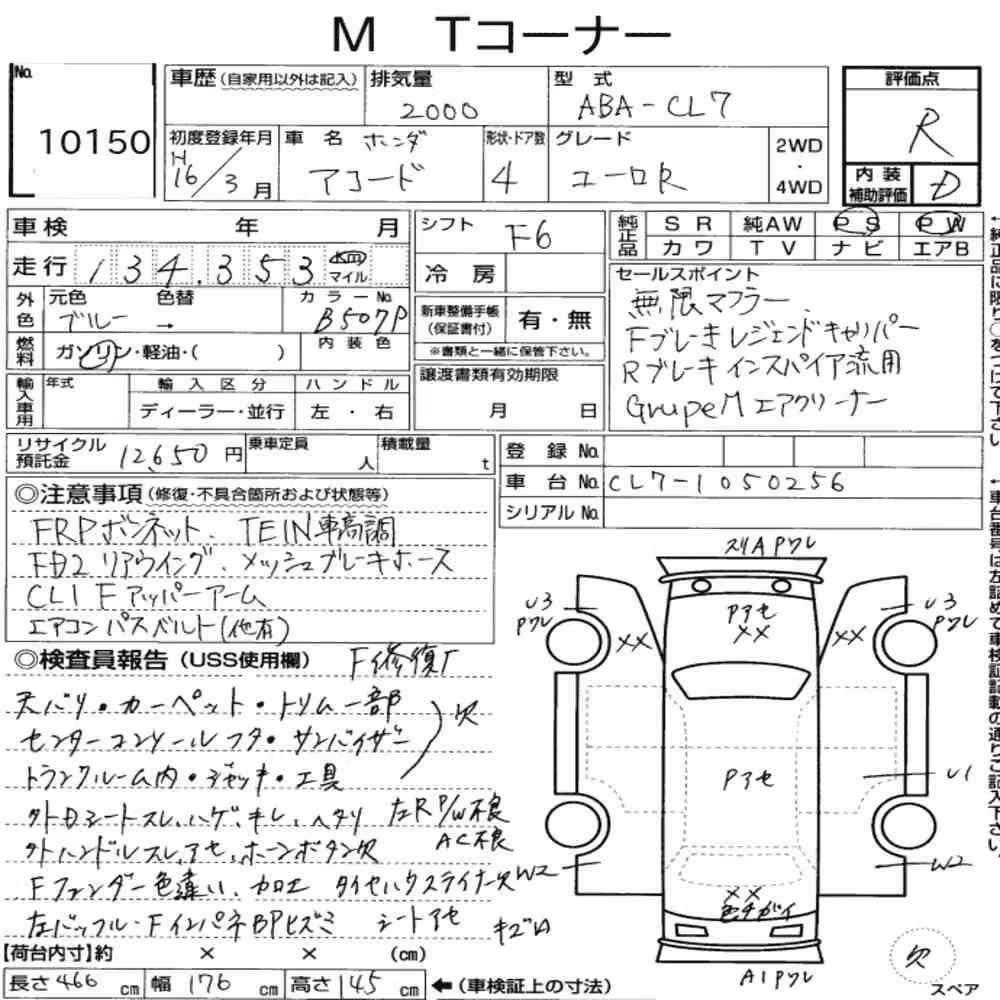 M Tコーナー
No. 10150
車歴 (自家用以外は記入)
排気量 2000
型式 ABA-CL7
評価点 R
初度登録年月 H16/3月
車名 ホンダ アコード
形状・ドア数 4
グレード ユーロR
2WD・4WD
内装補助評価 D
車検 年 月
シフト F6
純正品 SR 純AW PS PW
カワ TV ナビ エアB
走行 134,353 km マイル
冷房
セールスポイント
無限マフラー
Fブレーキレジェンドキャリパー
Rブレーキインスパイア流用
GrupeMエアクリーナー
外色 元色 ブルー 色替 → カラーNo. B507P
新車整備手帳(保証書付) 有・無
※書類と一緒に保管下さい。
燃料 ガソリン・軽油・( ) 内装色
譲渡書類有効期限 月 日
輸入車用 年式 輸入区分 ハンドル
ディーラー・並行 左・右
リサイクル預託金 12,650円
乗車定員 人
積載量 t
登録No.
車台No. CL7-1050256
シリアルNo.
◎注意事項(修復・不具合箇所および状態等)
FRPボンネット、TEIN車高調
FD2リアウイング、メッシュブレーキホース
CL1 Fアッパーアーム
エアコンパスベルト(他有)
◎検査員報告(USS使用欄) F修復歴
天バリ・カーペット・トリム一部
センターコンソールフタ・サンバイザー 欠
トランクルーム内・ジャッキ・工具
外Dシートスレ、ハゲ、キレ、ヘタリ 左R P/W不良
外ハンドルスレ、アセ、ホーンボタン欠 AC不良
Fフェンダー色違い、カロエ タイヤハウスライナー欠
左バッフル・FインパネBPヒズミ シートアセ キズ凹
【荷台内寸】約 × × (cm)
長さ466cm 幅176cm 高さ145cm ←(車検証上の寸法)
スリAPワレ
U3 Pワレ
U3 Pワレ
××
Pアセ ××
××
Pアセ
U1
W2
W2
××
色チガイ
A1Pワレ
欠
スペア